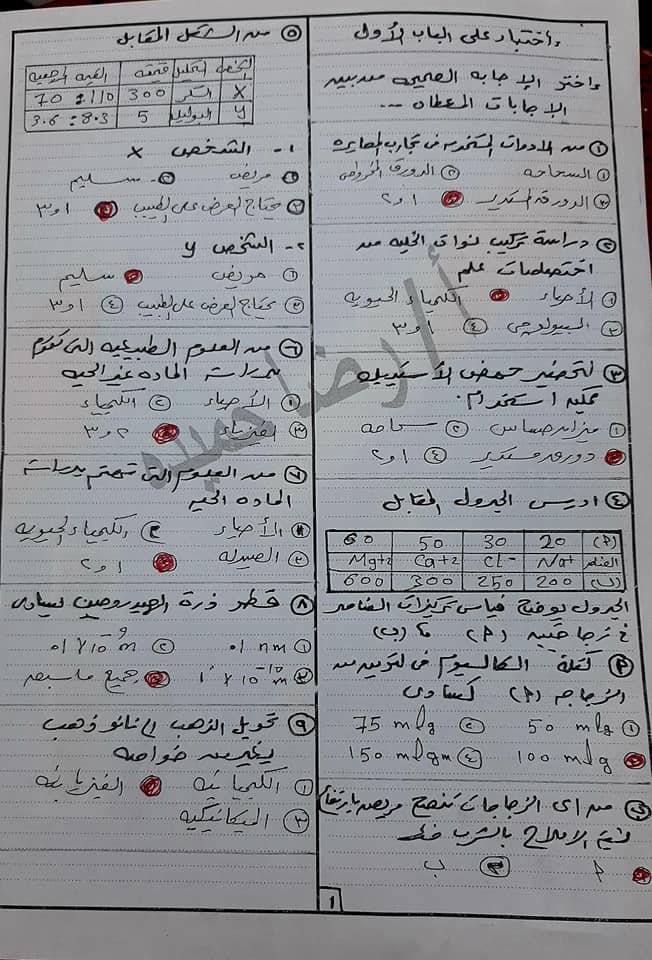 إختبار على الباب الأول
إختر الإجابه الصحيحه من بين
الإجابات المعطاه ...
① من الادوات المستخدمه فى تجارب المعايره
① السحاحه ② الدورق المخروطى
③ الدورق المستدير ④ ١ و ٢
② دراسة تركيب نواة الخليه من
اختصاصات علم
① الأحياء ② الكيمياء الحيويه
③ البيولوچى ④ ١ و ٣
③ لتحضير حمض الأستيك
يمكن استخدام.
① ميزان حساس ② سحاحه
③ دورق مستدير ④ ١ و ٢
④ ادرس الجدول المقابل
(P) 20 30 50 60
العنصر Na+ Cl- Ca+2 Mg+2
(ب) 200 250 300 600
الجدول يوضح قياس تركيزات العناصر
فى زجاجتين (P) ، (ب)
كتلة الكالسيوم فى لترين من
الزجاجه (P) تساوى
① 50 mlg ② 75 mlg
③ 100 mlg ④ 150 mlgm
ب من اى الزجاجات تنصح مريض بارتفاع
الاملاح بالشرب
P ب
1
⑤ من الشكل المقابل
الشخص التحليل قيمته القيمه المرجعيه
X السكر 300 110 : 70
y البوليك 5 8.3 : 3.6
١- الشخص X
① مريض ② سليم
③ يحتاج العرض على الطبيب ④ ١ و ٣
٢- الشخص y
① مريض ② سليم
③ يحتاج العرض على الطبيب ④ ١ و ٣
⑥ من العلوم الطبيعيه التى تقوم
بدراسة الماده غير الحيه
① الأحياء ② الكيمياء
③ الفيزياء ④ ٢ و ٣
⑦ من العلوم التى تهتم بدراسة
الماده الحيه
① الأحياء ② الكيمياء الحيويه
③ الصيدله ④ ١ و ٢
⑧ قطر ذرة الهيدروجين يساوى
① ٠١ nm ② ٠١ x 10⁻⁹ m
③ 1 x 10⁻¹⁰ m ④ جميع ما سبق
⑨ تحويل الذهب الى نانو ذهب
يغير من خواصه
① الكيميائيه ② الفيزيائيه
③ الميكانيكيه
أ / رضا حميده